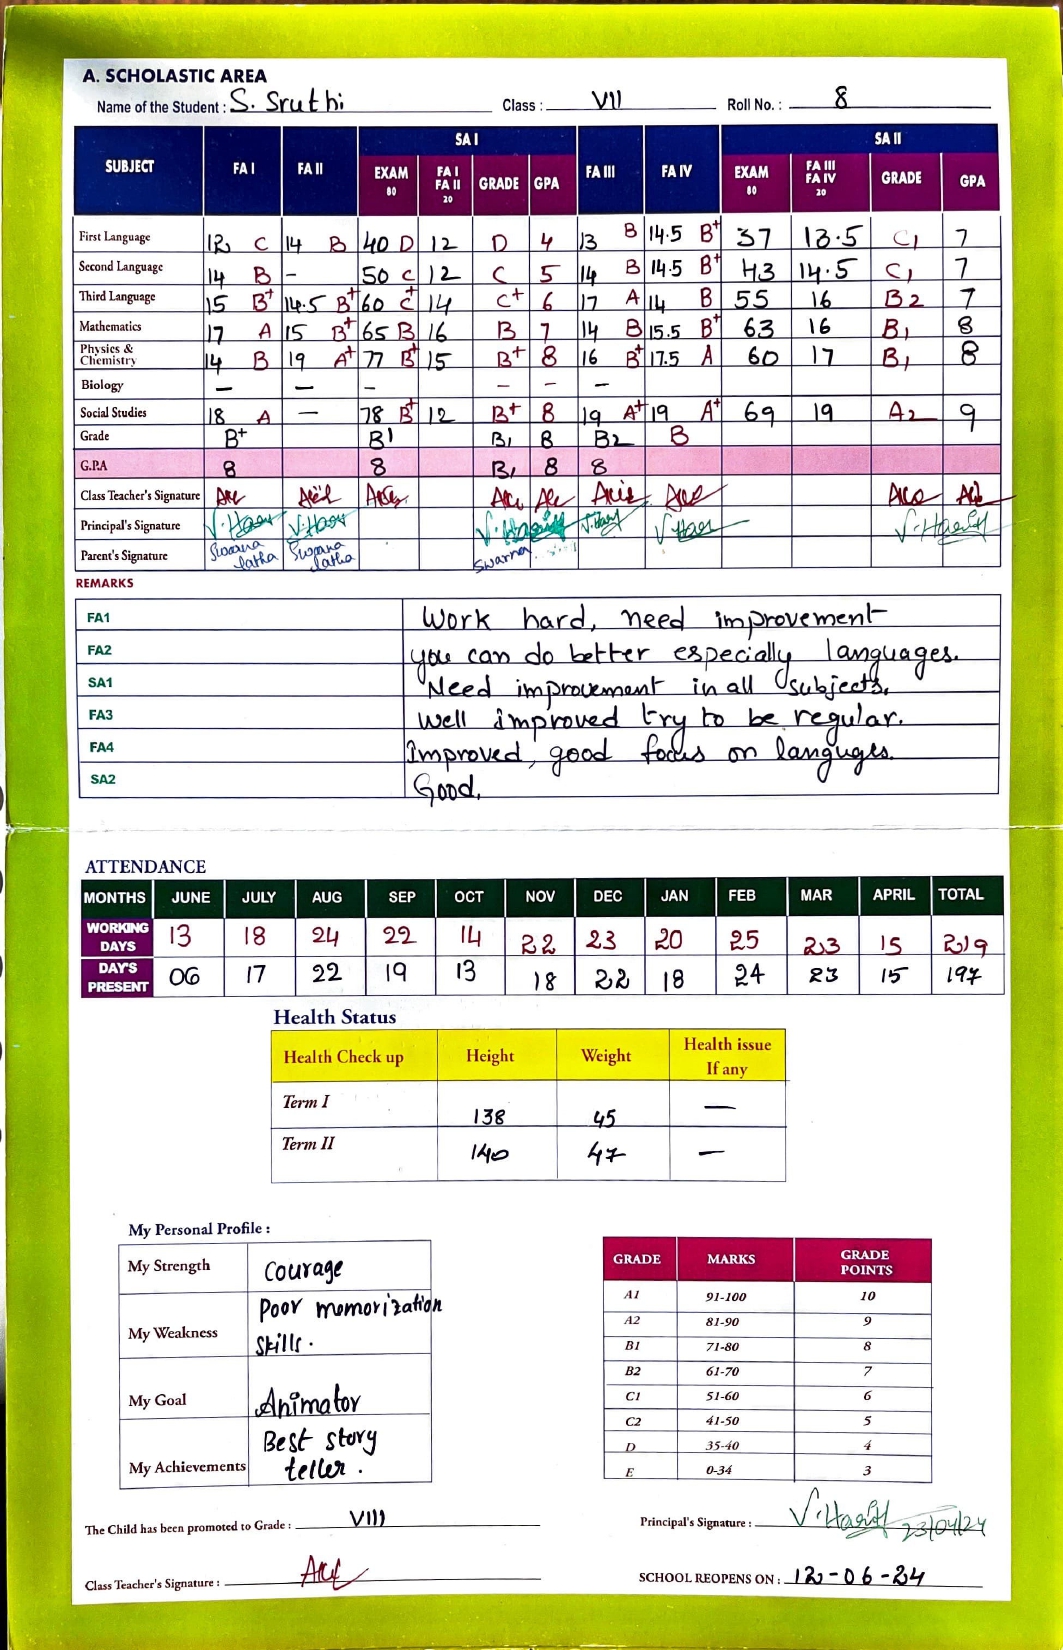 A. SCHOLASTIC AREA
Name of the Student : S. Sruthi Class : VII Roll No. : 8
SUBJECT FA I FA II SA I FA III FA IV SA II
EXAM 80 FA I FA II 20 GRADE GPA EXAM 80 FA III FA IV 20 GRADE GPA
First Language 12 C 14 B 40 D 12 D 4 13 B 14.5 B+ 37 13.5 C1 7
Second Language 14 B - 50 C 12 C 5 14 B 14.5 B+ 43 14.5 C1 7
Third Language 15 B+ 14.5 B+ 60 C+ 14 C+ 6 17 A 14 B 55 16 B2 7
Mathematics 17 A 15 B+ 65 B 16 B 7 14 B 15.5 B+ 63 16 B1 8
Physics & Chemistry 14 B 19 A+ 77 B+ 15 B+ 8 16 B+ 17.5 A 60 17 B1 8
Biology — — - - - —
Social Studies 18 A — 78 B+ 12 B+ 8 19 A+ 19 A+ 69 19 A2 9
Grade B+ B1 B1 8 B2 B
G.P.A 8 8 B1 8 8
Class Teacher's Signature
Principal's Signature
Parent's Signature Swarna latha Swarna latha Swarna
REMARKS
FA1 Work hard, need improvement
FA2 you can do better especially languages.
SA1 Need improvement in all subjects.
FA3 Well improved try to be regular.
FA4 Improved, good focus on languges.
SA2 Good.
ATTENDANCE
MONTHS JUNE JULY AUG SEP OCT NOV DEC JAN FEB MAR APRIL TOTAL
WORKING DAYS 13 18 24 22 14 22 23 20 25 23 15 219
DAY'S PRESENT 06 17 22 19 13 18 22 18 24 23 15 197
Health Status
Health Check up Height Weight Health issue If any
Term I 138 45 —
Term II 140 47 —
My Personal Profile :
My Strength Courage
My Weakness Poor memorization skills.
My Goal Animator
My Achievements Best story teller.
GRADE MARKS GRADE POINTS
A1 91-100 10
A2 81-90 9
B1 71-80 8
B2 61-70 7
C1 51-60 6
C2 41-50 5
D 35-40 4
E 0-34 3
The Child has been promoted to Grade : VIII
Principal's Signature : 23/04/24
Class Teacher's Signature :
SCHOOL REOPENS ON : 12-06-24